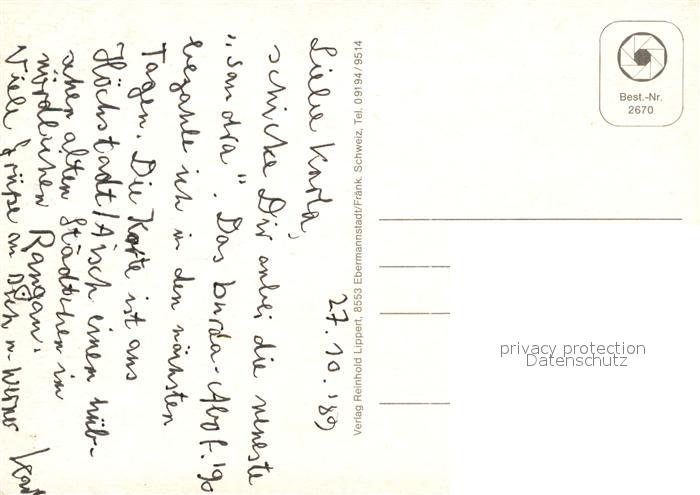 27.10.'89
Liebe Karla,
schicke Dir anbei die neueste
„Sandra". Das burda-Abo f. '90
bezahle ich in den nächsten
Tagen. Die Karte ist aus
Höchstadt/Aisch einem hüb-
schen alten Städtchen im
nördlichen Rangau.
Viele Grüße an Dich u. Werner
Verlag Reinhold Lippert, 8553 Ebermannstadt/Fränk. Schweiz, Tel. 09194/9514
Best.-Nr.
2670
privacy protection
Datenschutz